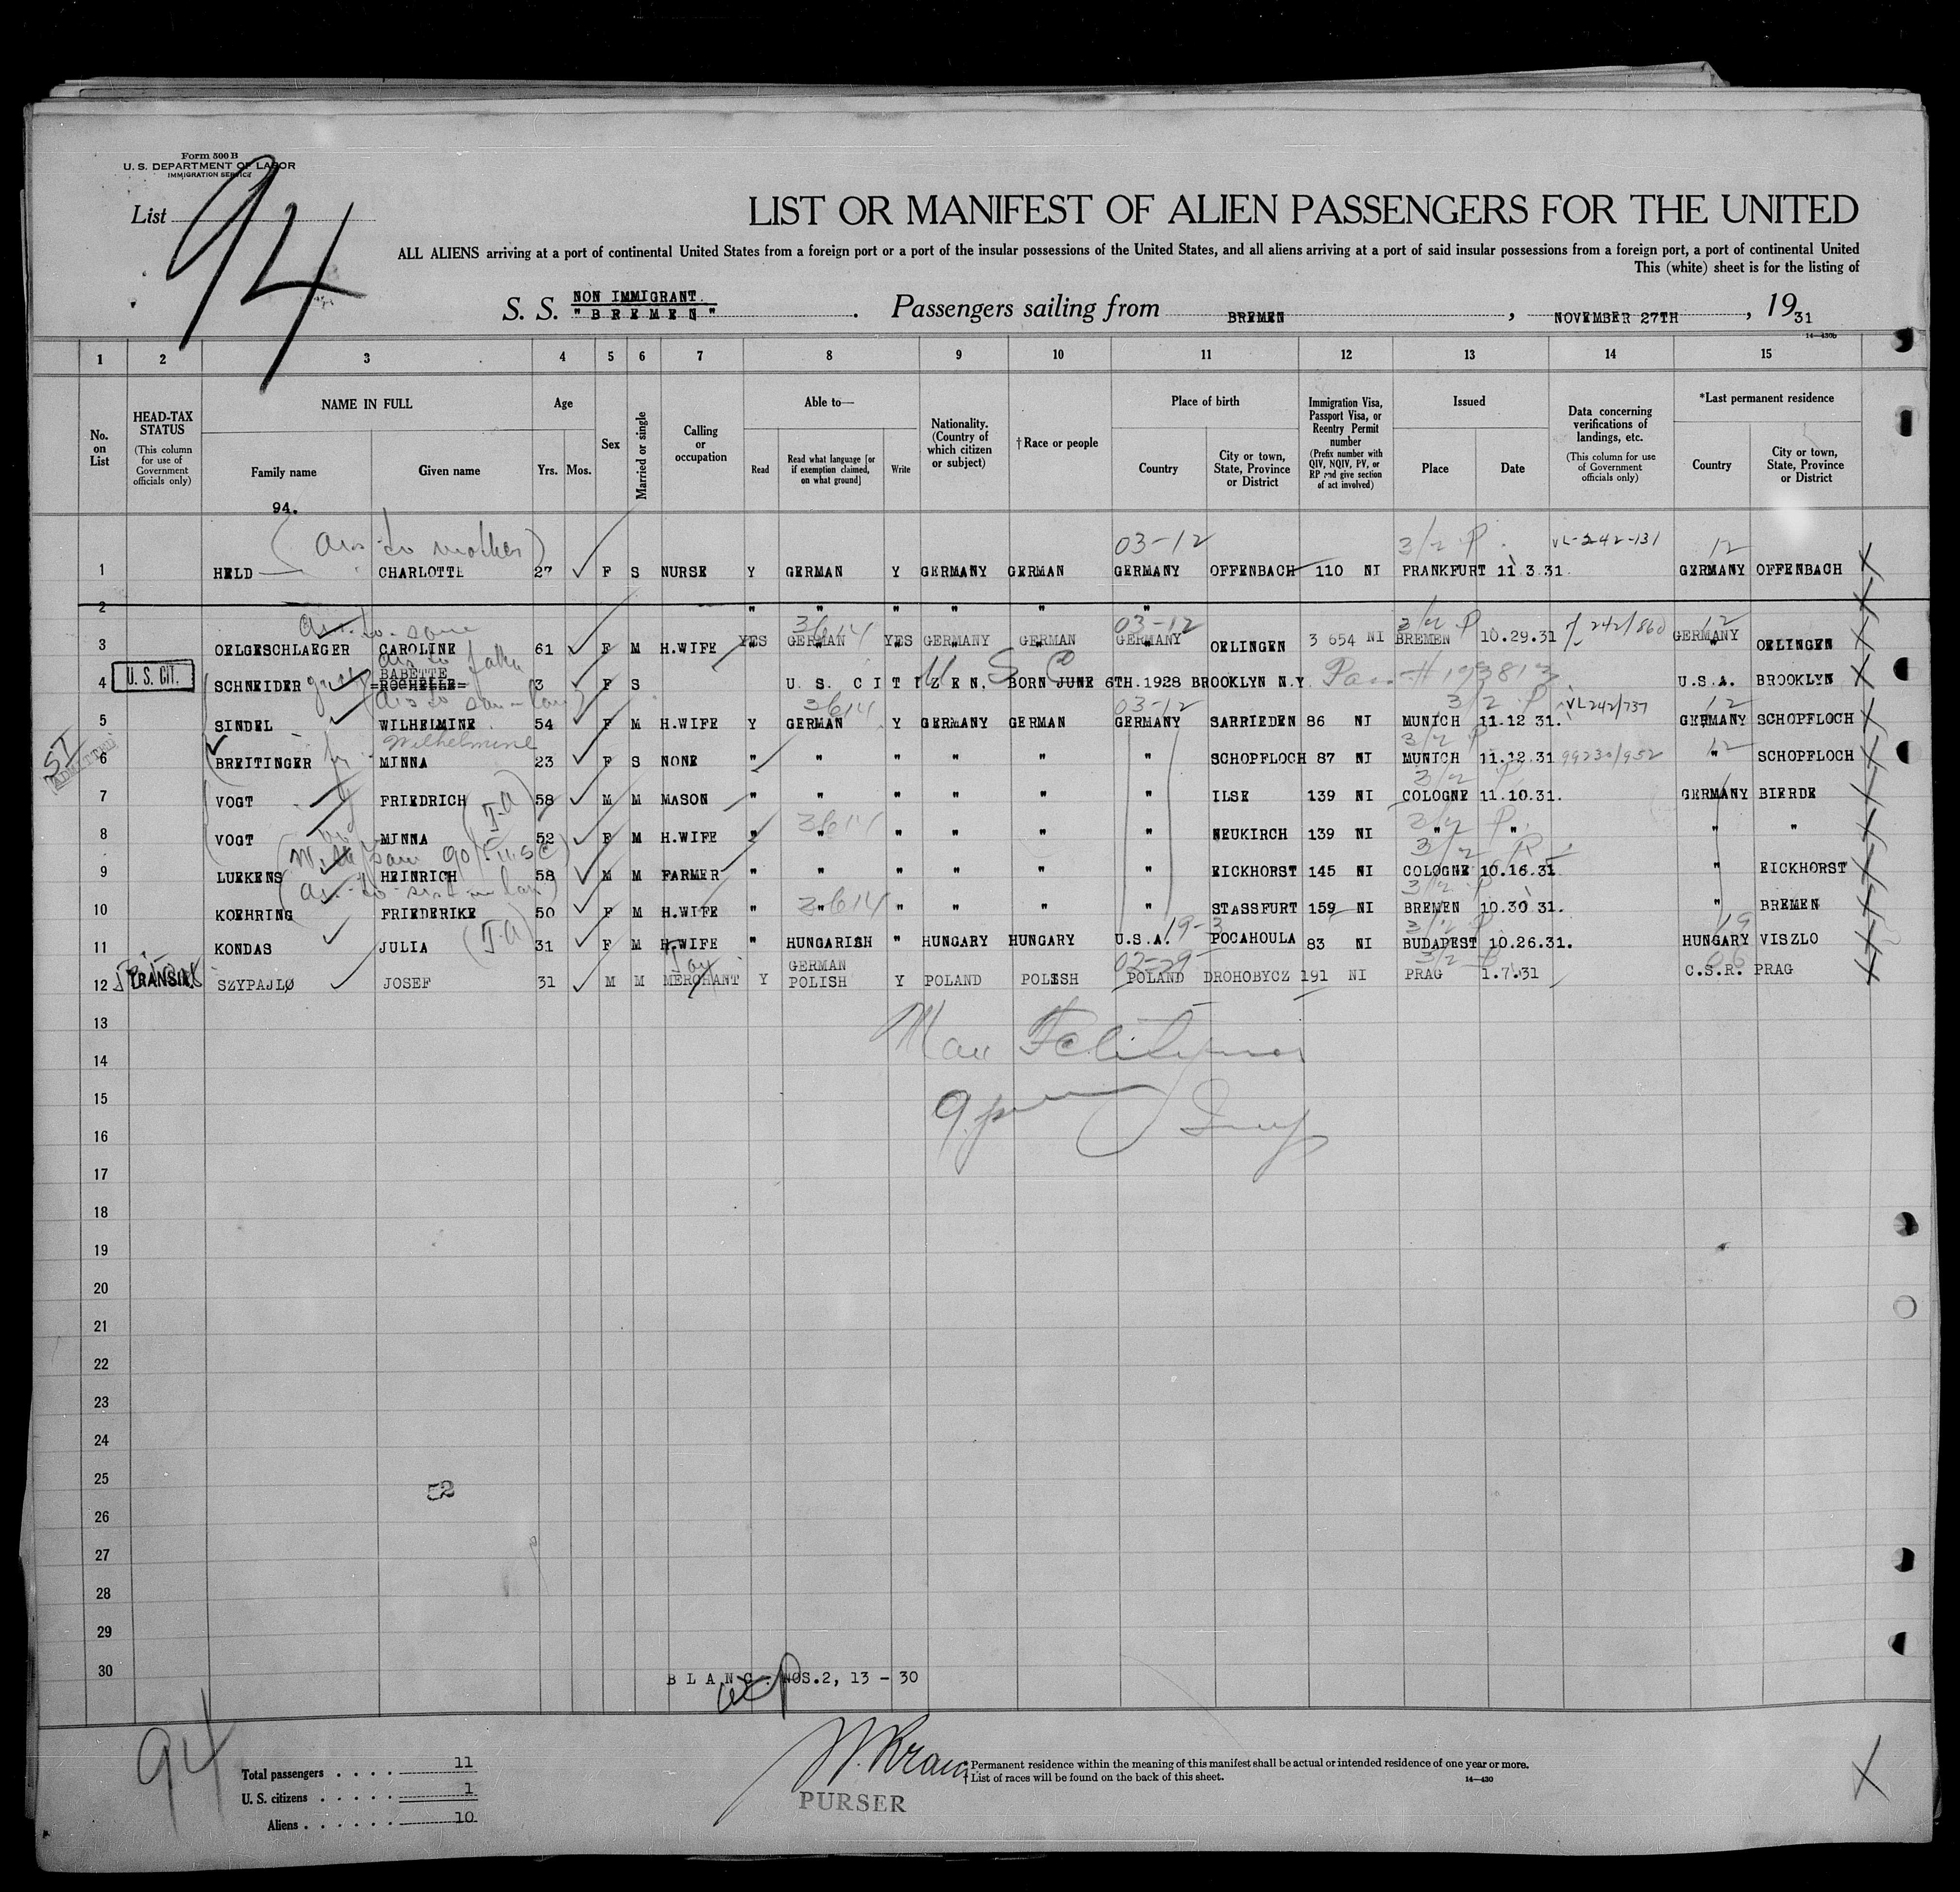 Form 500 B
U. S. DEPARTMENT OF LABOR
IMMIGRATION SERVICE
List 94
LIST OR MANIFEST OF ALIEN PASSENGERS FOR THE UNITED
ALL ALIENS arriving at a port of continental United States from a foreign port or a port of the insular possessions of the United States, and all aliens arriving at a port of said insular possessions from a foreign port, a port of continental United
This (white) sheet is for the listing of
NON IMMIGRANT.
S. S. "BREMEN". Passengers sailing from BREMEN, NOVEMBER 27TH, 1931
14—430b
1 2 3 4 5 6 7 8 9 10 11 12 13 14 15
No. on List
HEAD-TAX STATUS
(This column for use of Government officials only)
NAME IN FULL
Family name
Given name
Age
Yrs.
Mos.
Sex
Married or single
Calling or occupation
Able to—
Read
Read what language [or if exemption claimed, on what ground]
Write
Nationality. (Country of which citizen or subject)
†Race or people
Place of birth
Country
City or town, State, Province or District
Immigration Visa, Passport Visa, or Reentry Permit number
(Prefix number with QIV, NQIV, PV, or RP and give section of act involved)
Issued
Place
Date
Data concerning verifications of landings, etc.
(This column for use of Government officials only)
*Last permanent residence
Country
City or town, State, Province or District
94.
03-12 3/2 P. VL-242-131 12
1 HELD CHARLOTTE 27 F S NURSE Y GERMAN Y GERMANY GERMAN GERMANY OFFENBACH 110 NI FRANKFURT 11.3.31. GERMANY OFFENBACH
2 " " " " " "
3614 03-12 3/2 P 242/860 12
3 OELGESCHLAEGER CAROLINE 61 F M H.WIFE YES GERMAN YES GERMANY GERMAN GERMANY OELINGEN 3 654 NI BREMEN 10.29.31 GERMANY OELINGEN
U. S. CIT.
BABETTE U S C
4 SCHNEIDER =ROCHELLE= 3 F S U. S. CITIZEN, BORN JUNE 6TH.1928 BROOKLYN N.Y. U.S.A. BROOKLYN
3614 03-12 3/2 P VL242/737 12
5 SINDEL WILHELMINE 54 F M H.WIFE Y GERMAN Y GERMANY GERMAN GERMANY SARRIEDEN 86 NI MUNICH 11.12 31. GERMANY SCHOPFLOCH
Wilhelmine 3/2 P 12
6 BREITINGER MINNA 23 F S NONE " " " " " " SCHOPFLOCH 87 NI MUNICH 11.12.31 99230/952 " SCHOPFLOCH
3/2 P
7 VOGT FRIEDRICH 58 M M MASON " " " " " " ILSE 139 NI COLOGNE 11.10.31. GERMANY BIERDE
3614 3/2 P.
8 VOGT MINNA 52 F M H.WIFE " " " " " " NEUKIRCH 139 NI " " " "
3/2
9 LUEKENS HEINRICH 58 M M FARMER " " " " " " EICKHORST 145 NI COLOGNE 10.16.31 " EICKHORST
3614 3/2 P
10 KOEHRING FRIEDERIKE 50 F M H.WIFE " " " " " " STASSFURT 159 NI BREMEN 10.30 31. " BREMEN
19-3 3/2 P 19
11 KONDAS JULIA 31 F M H.WIFE " HUNGARISH " HUNGARY HUNGARY U.S.A. POCAHOULA 83 NI BUDAPEST 10.26.31. HUNGARY VISZLO
GERMAN 02-29 3/2 06
12 TRANSIT SZYPAJLØ JOSEF 31 M M MERCHANT Y POLISH Y POLAND POLISH POLAND DROHOBYCZ 191 NI PRAG 1.7.31 C.S.R. PRAG
13
14
15
16
17
18
19
20
21
22
23
24
25
52
26
27
28
29
30
BLANC. NOS.2, 13 - 30
94
Total passengers . . . . 11
U. S. citizens . . . . . 1
Aliens . . . . . . 10
PURSER
*Permanent residence within the meaning of this manifest shall be actual or intended residence of one year or more.
†List of races will be found on the back of this sheet.
14—430